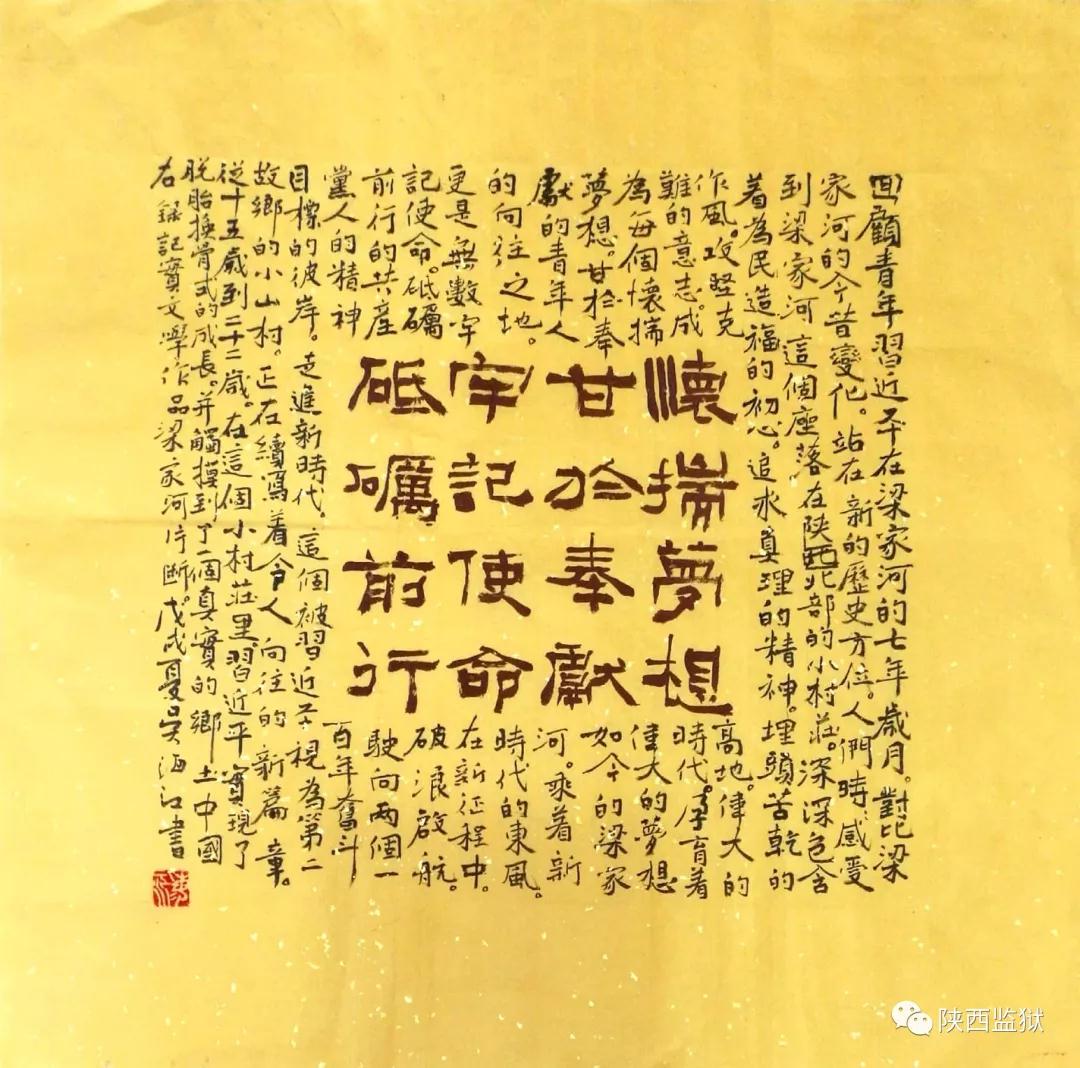 回顧青年習近平在梁家河的七年歲月。對比梁
家河的今昔變化。站在新的歷史方位。人們時感受
到梁家河這個座落在陝西北部的小村莊。深深包含
着為民造福的初心。追求真理的精神。埋頭苦乾的
作風。攻堅克
難的意志。成
為每個懷揣
夢想。甘於奉
獻的青年人
的向往之地。
更是無數牢
記使命。砥礪
前行的共産
黨人的精神
高地。偉大的
時代。孕育着
偉大的夢想
如今的梁家
河。乘着新
時代的東風。
在新征程中。
破浪啟航。
駛向两個一
百年奮斗
目標的彼岸。走進新時代。這個被習近平視為第二
故鄉的小山村。正在續寫着令人向往的新篇章。
從十五歲到二十二歲。在這個小村莊里。習近平實現了
脫胎換骨式的成長。并觸摸到了一個真實的鄉土中國
右録記實文學作品梁家河片斷。戊戌夏吳江書
懷揣夢想
甘於奉獻
牢記使命
砥礪前行
陕西监狱